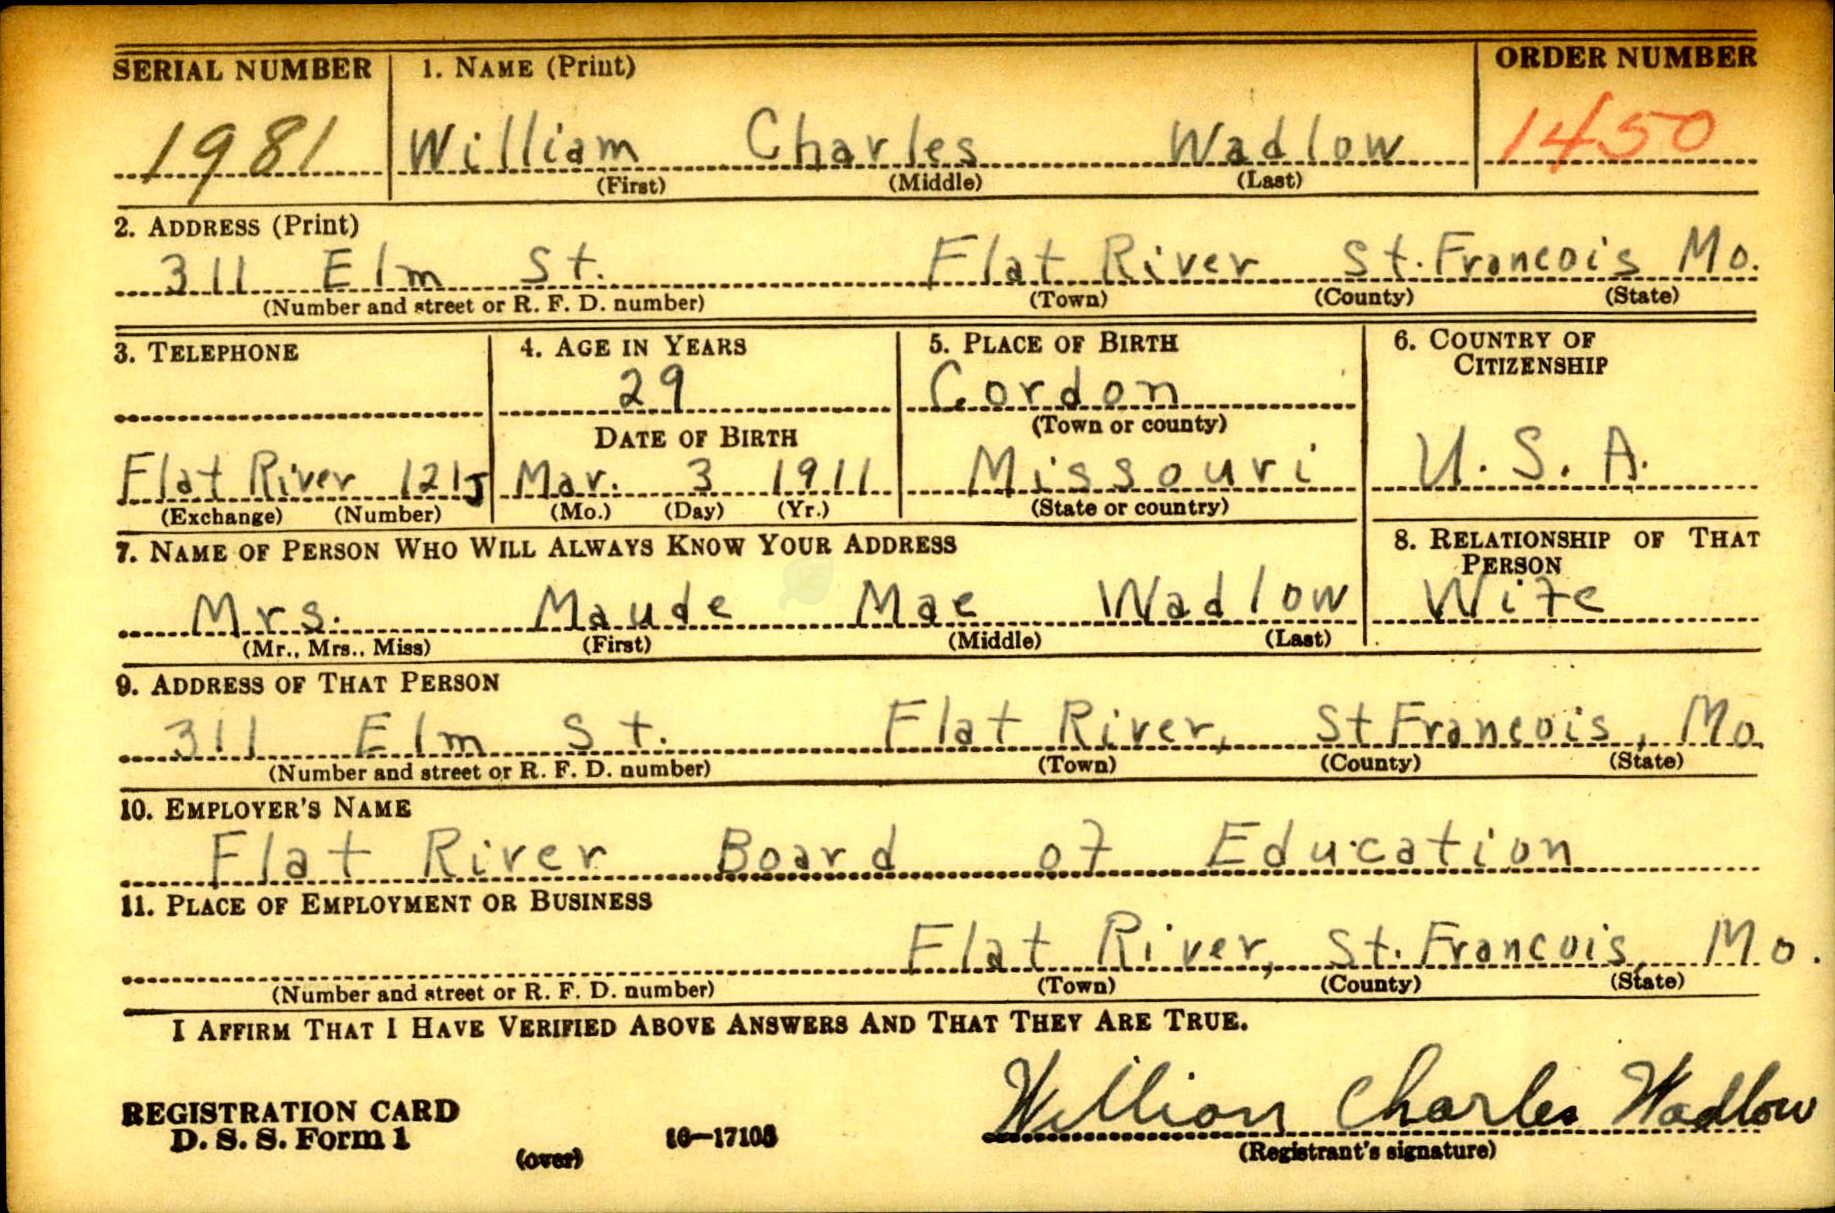 SERIAL NUMBER 1. NAME (Print) ORDER NUMBER
1981 William Charles Wadlow 1450
(First) (Middle) (Last)
2. ADDRESS (Print)
311 Elm St. Flat River St. Francois Mo.
(Number and street or R. F. D. number) (Town) (County) (State)
3. TELEPHONE 4. AGE IN YEARS 5. PLACE OF BIRTH 6. COUNTRY OF CITIZENSHIP
29 Cordon
DATE OF BIRTH (Town or county)
Flat River 121J Mar. 3 1911 Missouri U. S. A.
(Exchange) (Number) (Mo.) (Day) (Yr.) (State or country)
7. NAME OF PERSON WHO WILL ALWAYS KNOW YOUR ADDRESS 8. RELATIONSHIP OF THAT PERSON
Mrs. Maude Mae Wadlow Wife
(Mr., Mrs., Miss) (First) (Middle) (Last)
9. ADDRESS OF THAT PERSON
311 Elm St. Flat River, St Francois, Mo.
(Number and street or R. F. D. number) (Town) (County) (State)
10. EMPLOYER'S NAME
Flat River Board of Education
11. PLACE OF EMPLOYMENT OR BUSINESS
Flat River, St. Francois, Mo.
(Number and street or R. F. D. number) (Town) (County) (State)
I AFFIRM THAT I HAVE VERIFIED ABOVE ANSWERS AND THAT THEY ARE TRUE.
William Charles Wadlow
REGISTRATION CARD
D. S. S. Form 1 (over) 16—17105 (Registrant's signature)